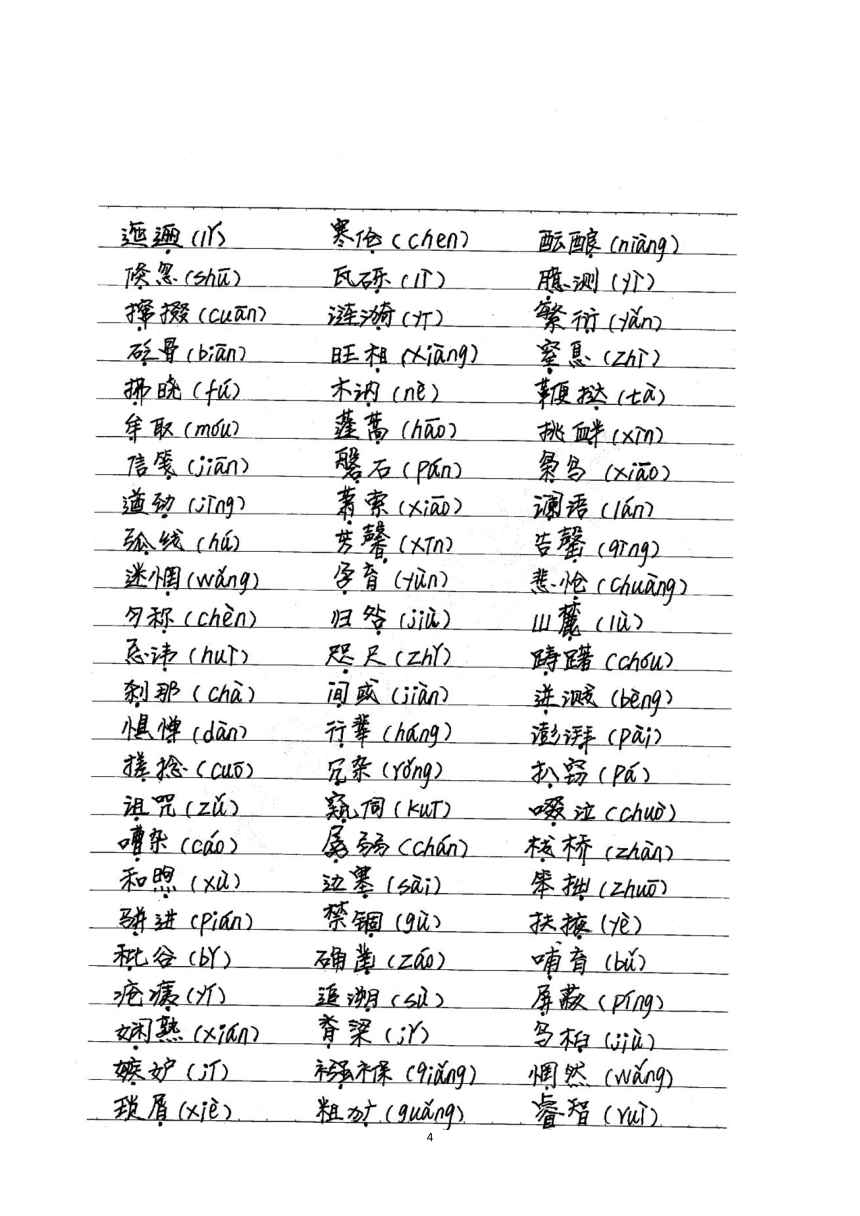 迤逦(lǐ) 寒伧(chen) 酝酿(niàng)
倏忽(shū) 瓦砾(lì) 臆测(yì)
撺掇(cuān) 涟漪(yī) 繁衍(yǎn)
砭骨(biān) 旺相(xiàng) 窒息(zhì)
拂晓(fú) 木讷(nè) 鞭挞(tà)
牟取(móu) 蓬蒿(hāo) 挑衅(xìn)
信笺(jiān) 磐石(pán) 枭鸟(xiāo)
遒劲(jìng) 萧索(xiāo) 谰语(lán)
弧线(hú) 芳馨(xīn) 告罄(qìng)
迷惘(wǎng) 孕育(yùn) 悲怆(chuàng)
匀称(chèn) 归咎(jiù) 山麓(lù)
忌讳(huì) 咫尺(zhǐ) 踌躇(chóu)
刹那(chà) 间或(jiàn) 迸溅(bèng)
惧惮(dàn) 行辈(háng) 澎湃(pài)
搓捻(cuō) 冗杂(rǒng) 扒窃(pá)
诅咒(zǔ) 窥伺(kuī) 啜泣(chuò)
嘈杂(cáo) 孱弱(chán) 栈桥(zhàn)
和煦(xù) 边塞(sài) 笨拙(zhuō)
骈进(pián) 禁锢(gù) 扶掖(yè)
秕谷(bǐ) 确凿(záo) 哺育(bǔ)
疮痍(yí) 追溯(sù) 屏蔽(píng)
娴熟(xián) 脊梁(jǐ) 乌桕(jiù)
嫉妒(jí) 襁褓(qiǎng) 惘然(wǎng)
琐屑(xiè) 粗犷(guǎng) 睿智(ruì)
4